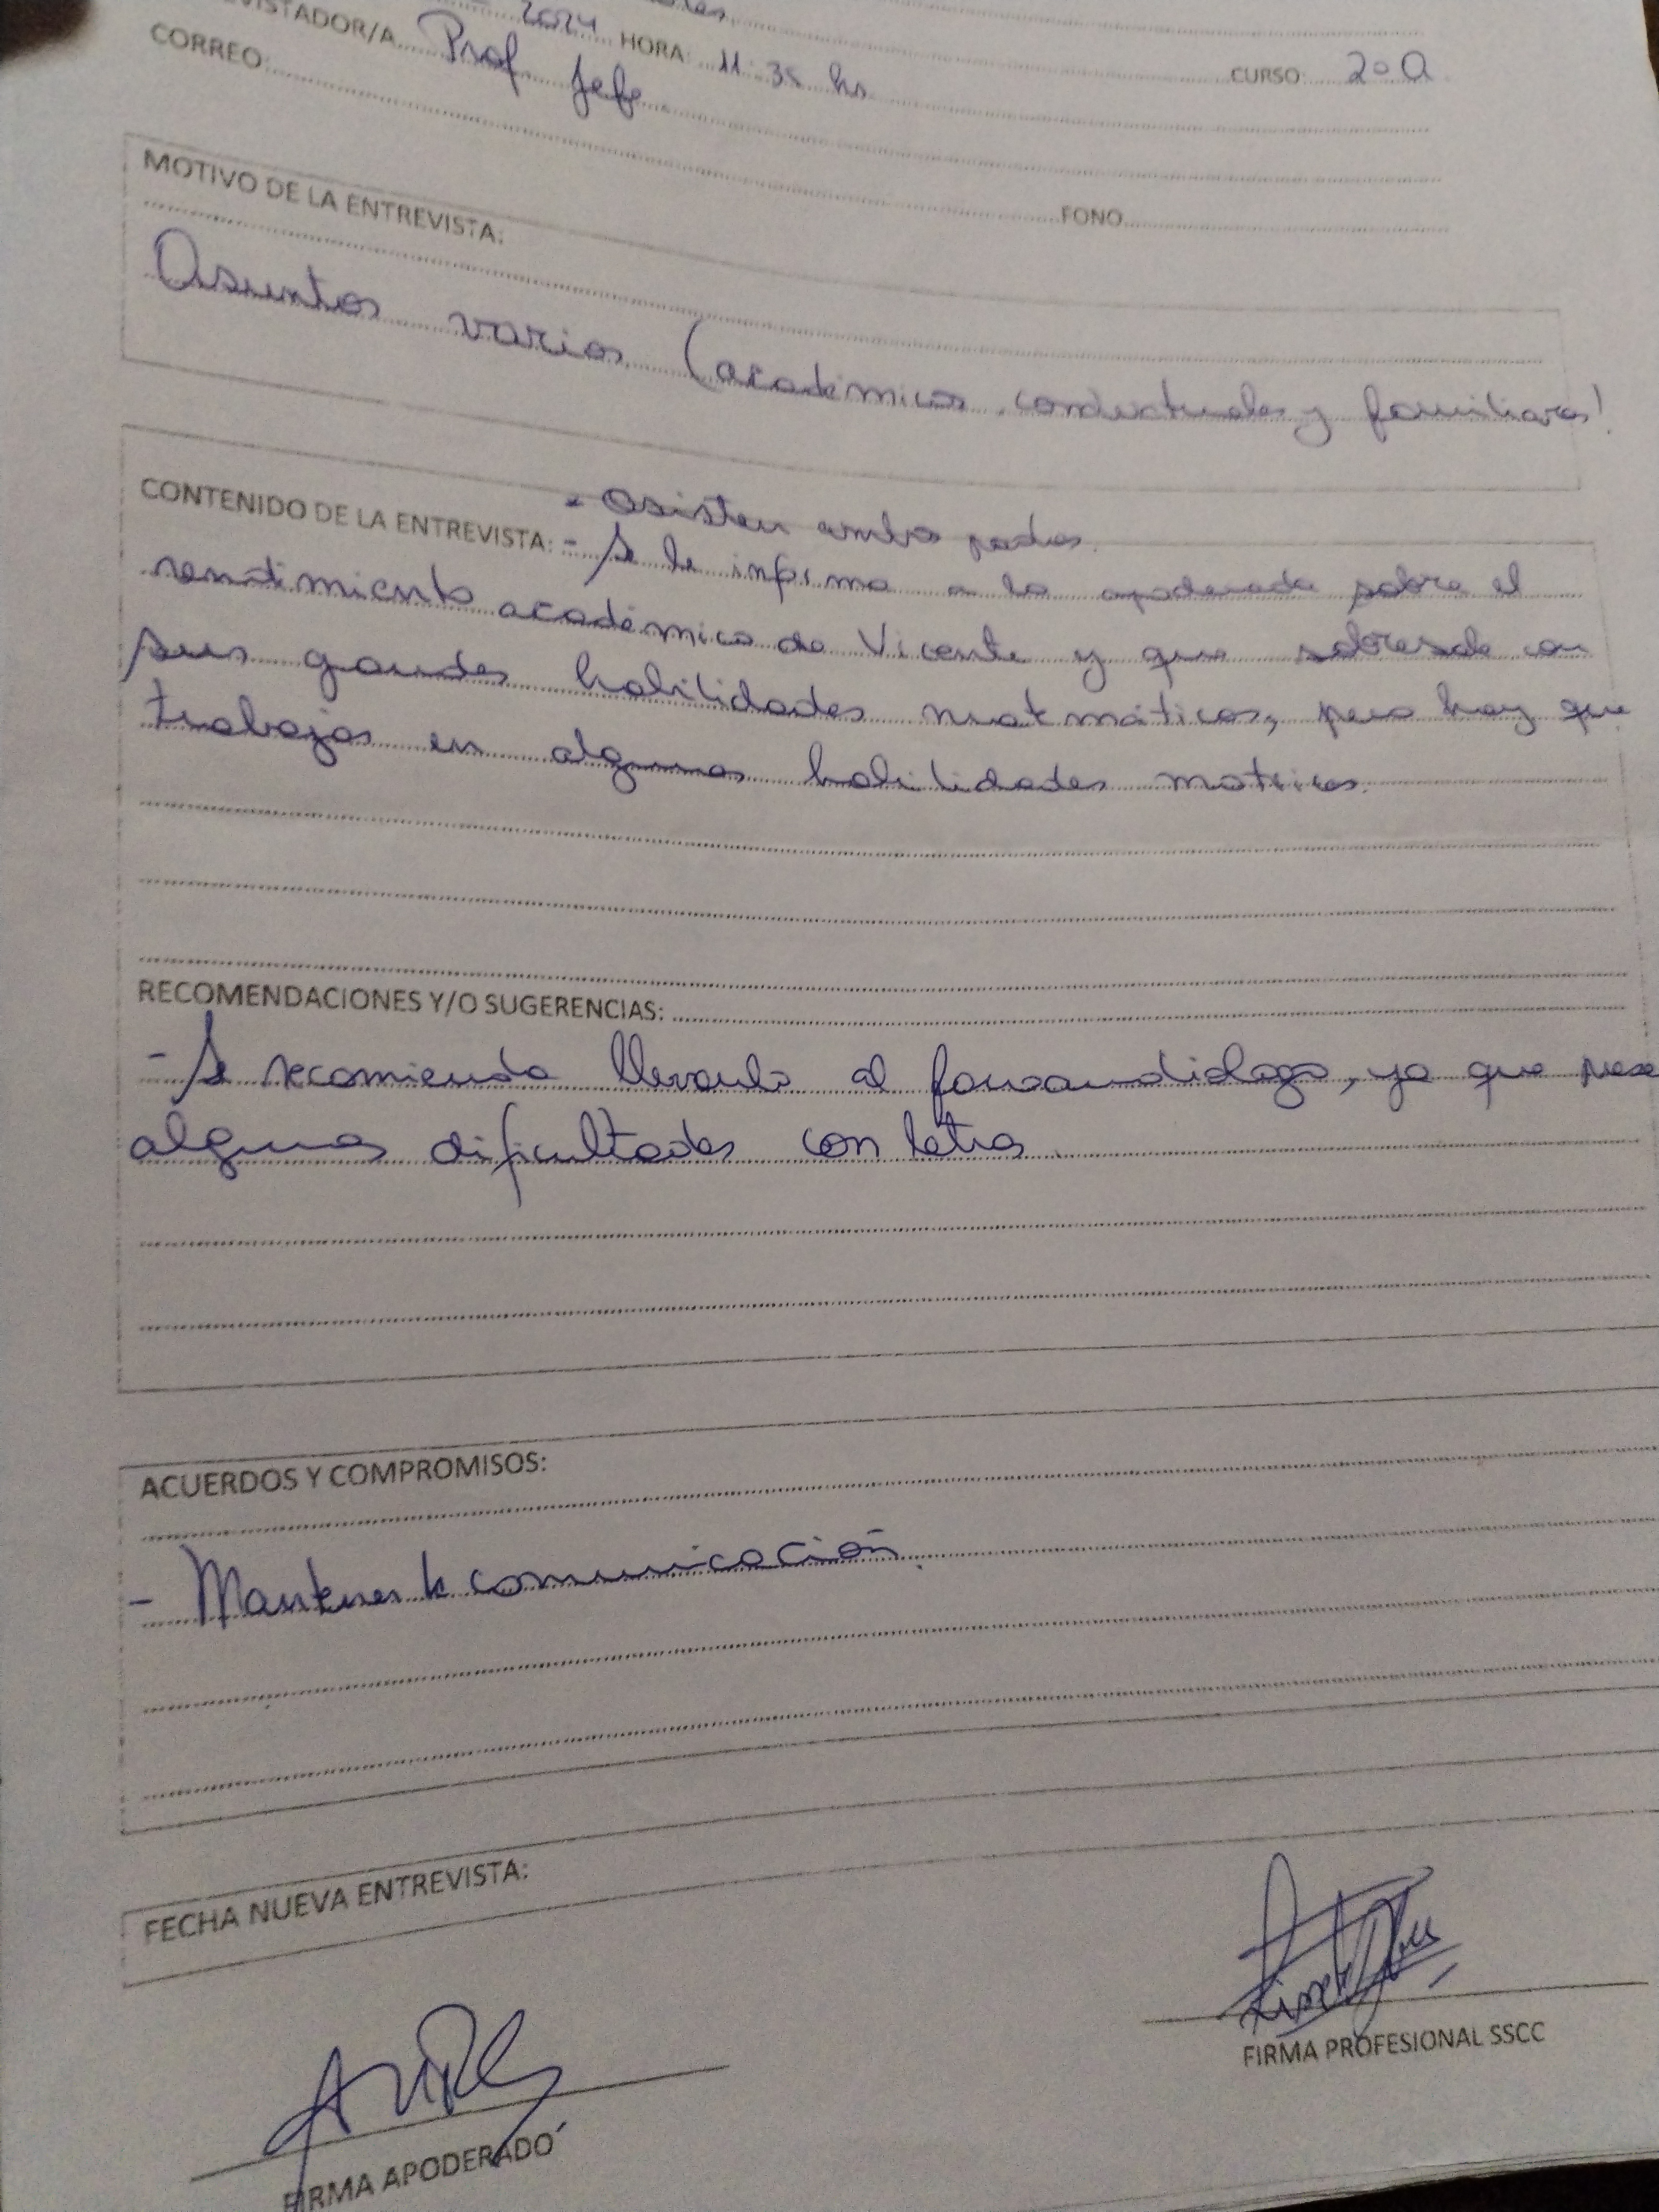 2024 HORA: 11:35 hs
CURSO: 2º A
VISTADOR/A Prof Jefe
CORREO: FONO
MOTIVO DE LA ENTREVISTA:
Asuntos varios (académicos, conductuales y familiares)
CONTENIDO DE LA ENTREVISTA: - Asisten ambos padres.
- Se le informa a la apoderada sobre el
rendimiento académico de Vicente y que sobresale con
sus grandes habilidades matemáticas, pero hay que
trabajar en algunas habilidades motrices.
RECOMENDACIONES Y/O SUGERENCIAS:
- Se recomienda llevarlo al fonoaudiólogo, ya que
algunas dificultades con letras
ACUERDOS Y COMPROMISOS:
- Mantener la comunicación.
FECHA NUEVA ENTREVISTA:
FIRMA PROFESIONAL SSCC
FIRMA APODERADO